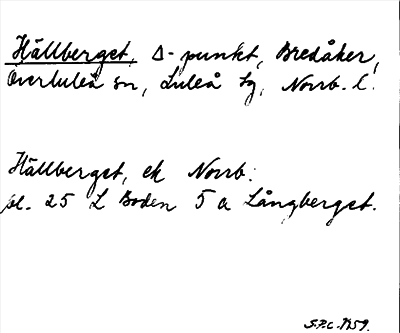 Hällberget, Δ-punkt, Bredåker,
Överluleå sn, Luleå tg, Norrb. l.
Hällberget, ek Norrb:
bl. 25 L Boden 5 a Långberget.
S.P.C. 1959.